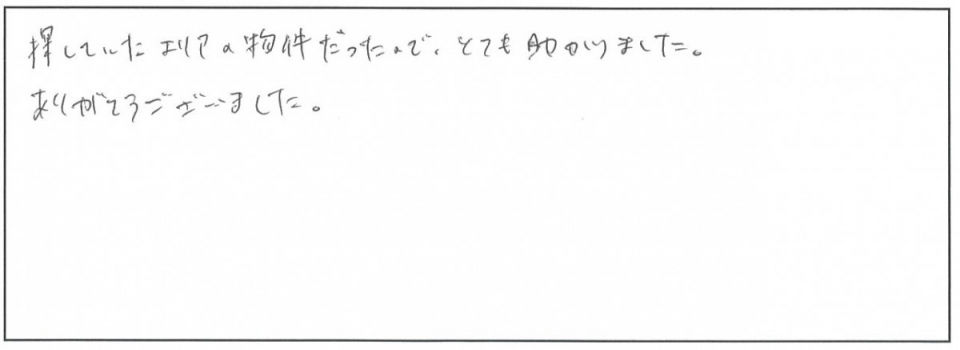 探していたエリアの物件だったので、とても助かりました。
ありがとうございました。